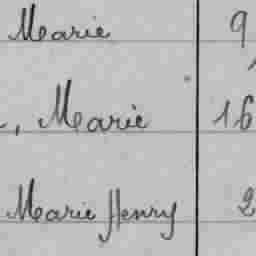 Marie 9
, Marie 16
Marie Henry 2